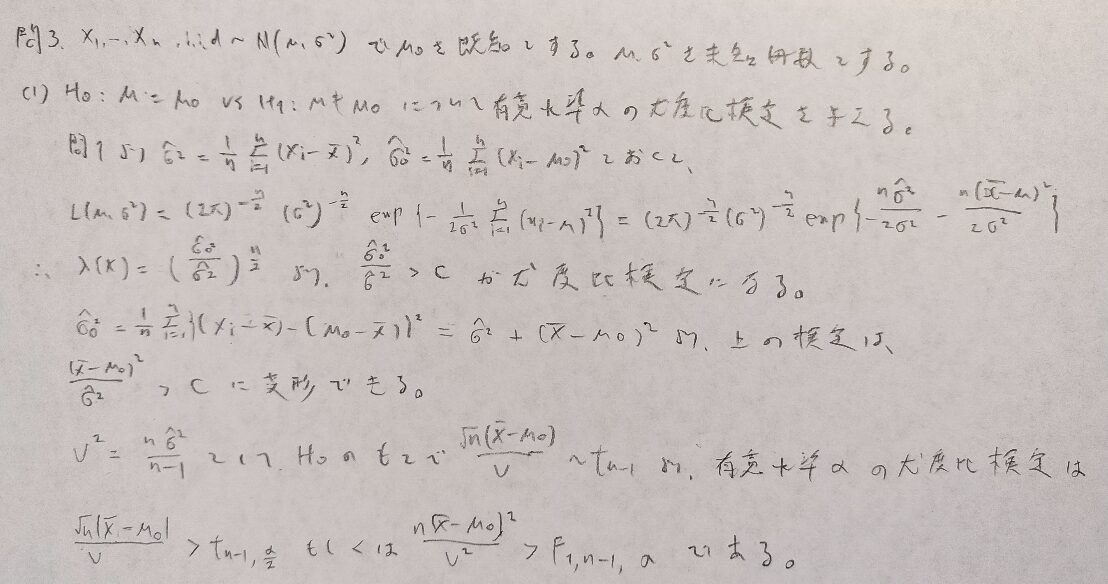 問3. X₁,…,Xₙ, i.i.d ~ N(μ, σ²) で μ₀を既知とする。μ, σ²を未知母数とする。
(1) H₀: μ = μ₀ vs H₁: μ ≠ μ₀ について有意水準αの尤度比検定を与える。
問1より σ̂² = 1/n Σᵢ₌₁ⁿ (Xᵢ - X̄)², σ̂₀² = 1/n Σᵢ₌₁ⁿ (Xᵢ - μ₀)² とおくと、
L(μ, σ²) = (2π)^{-n/2} (σ²)^{-n/2} exp{-1/(2σ²) Σᵢ₌₁ⁿ (xᵢ - μ)²} = (2π)^{-n/2} (σ²)^{-n/2} exp{-nσ̂²/(2σ²) - n(x̄ - μ)²/(2σ²)}
∴ λ(X) = (σ̂₀²/σ̂²)^{n/2} より、σ̂₀²/σ̂² > C が尤度比検定になる。
σ̂₀² = 1/n Σᵢ₌₁ⁿ {(Xᵢ - X̄) - (μ₀ - X̄)}² = σ̂² + (X̄ - μ₀)² より、上の検定は、
(X̄ - μ₀)²/σ̂² > C に変形できる。
V² = nσ̂²/(n-1) として、H₀のもとで √n(X̄ - μ₀)/V ~ tₙ₋₁ より、有意水準αの尤度比検定は
√n|X̄ - μ₀|/V > t_{n-1, α/2} もしくは n(X̄ - μ₀)²/V² > F_{1, n-1, α} である。